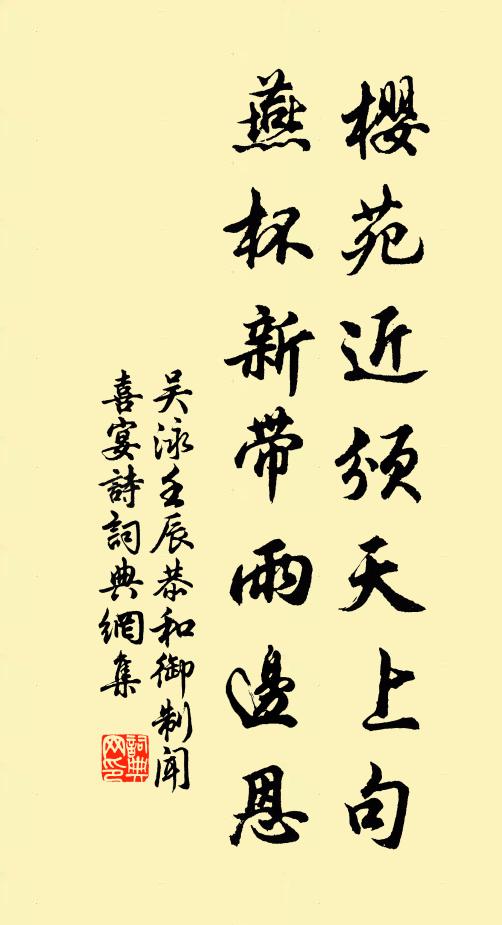 櫻苑近頒天上句
燕杯新帶雨邊恩
吴泳壬辰恭和御制闻
喜宴詩詞典網集
詞典網印